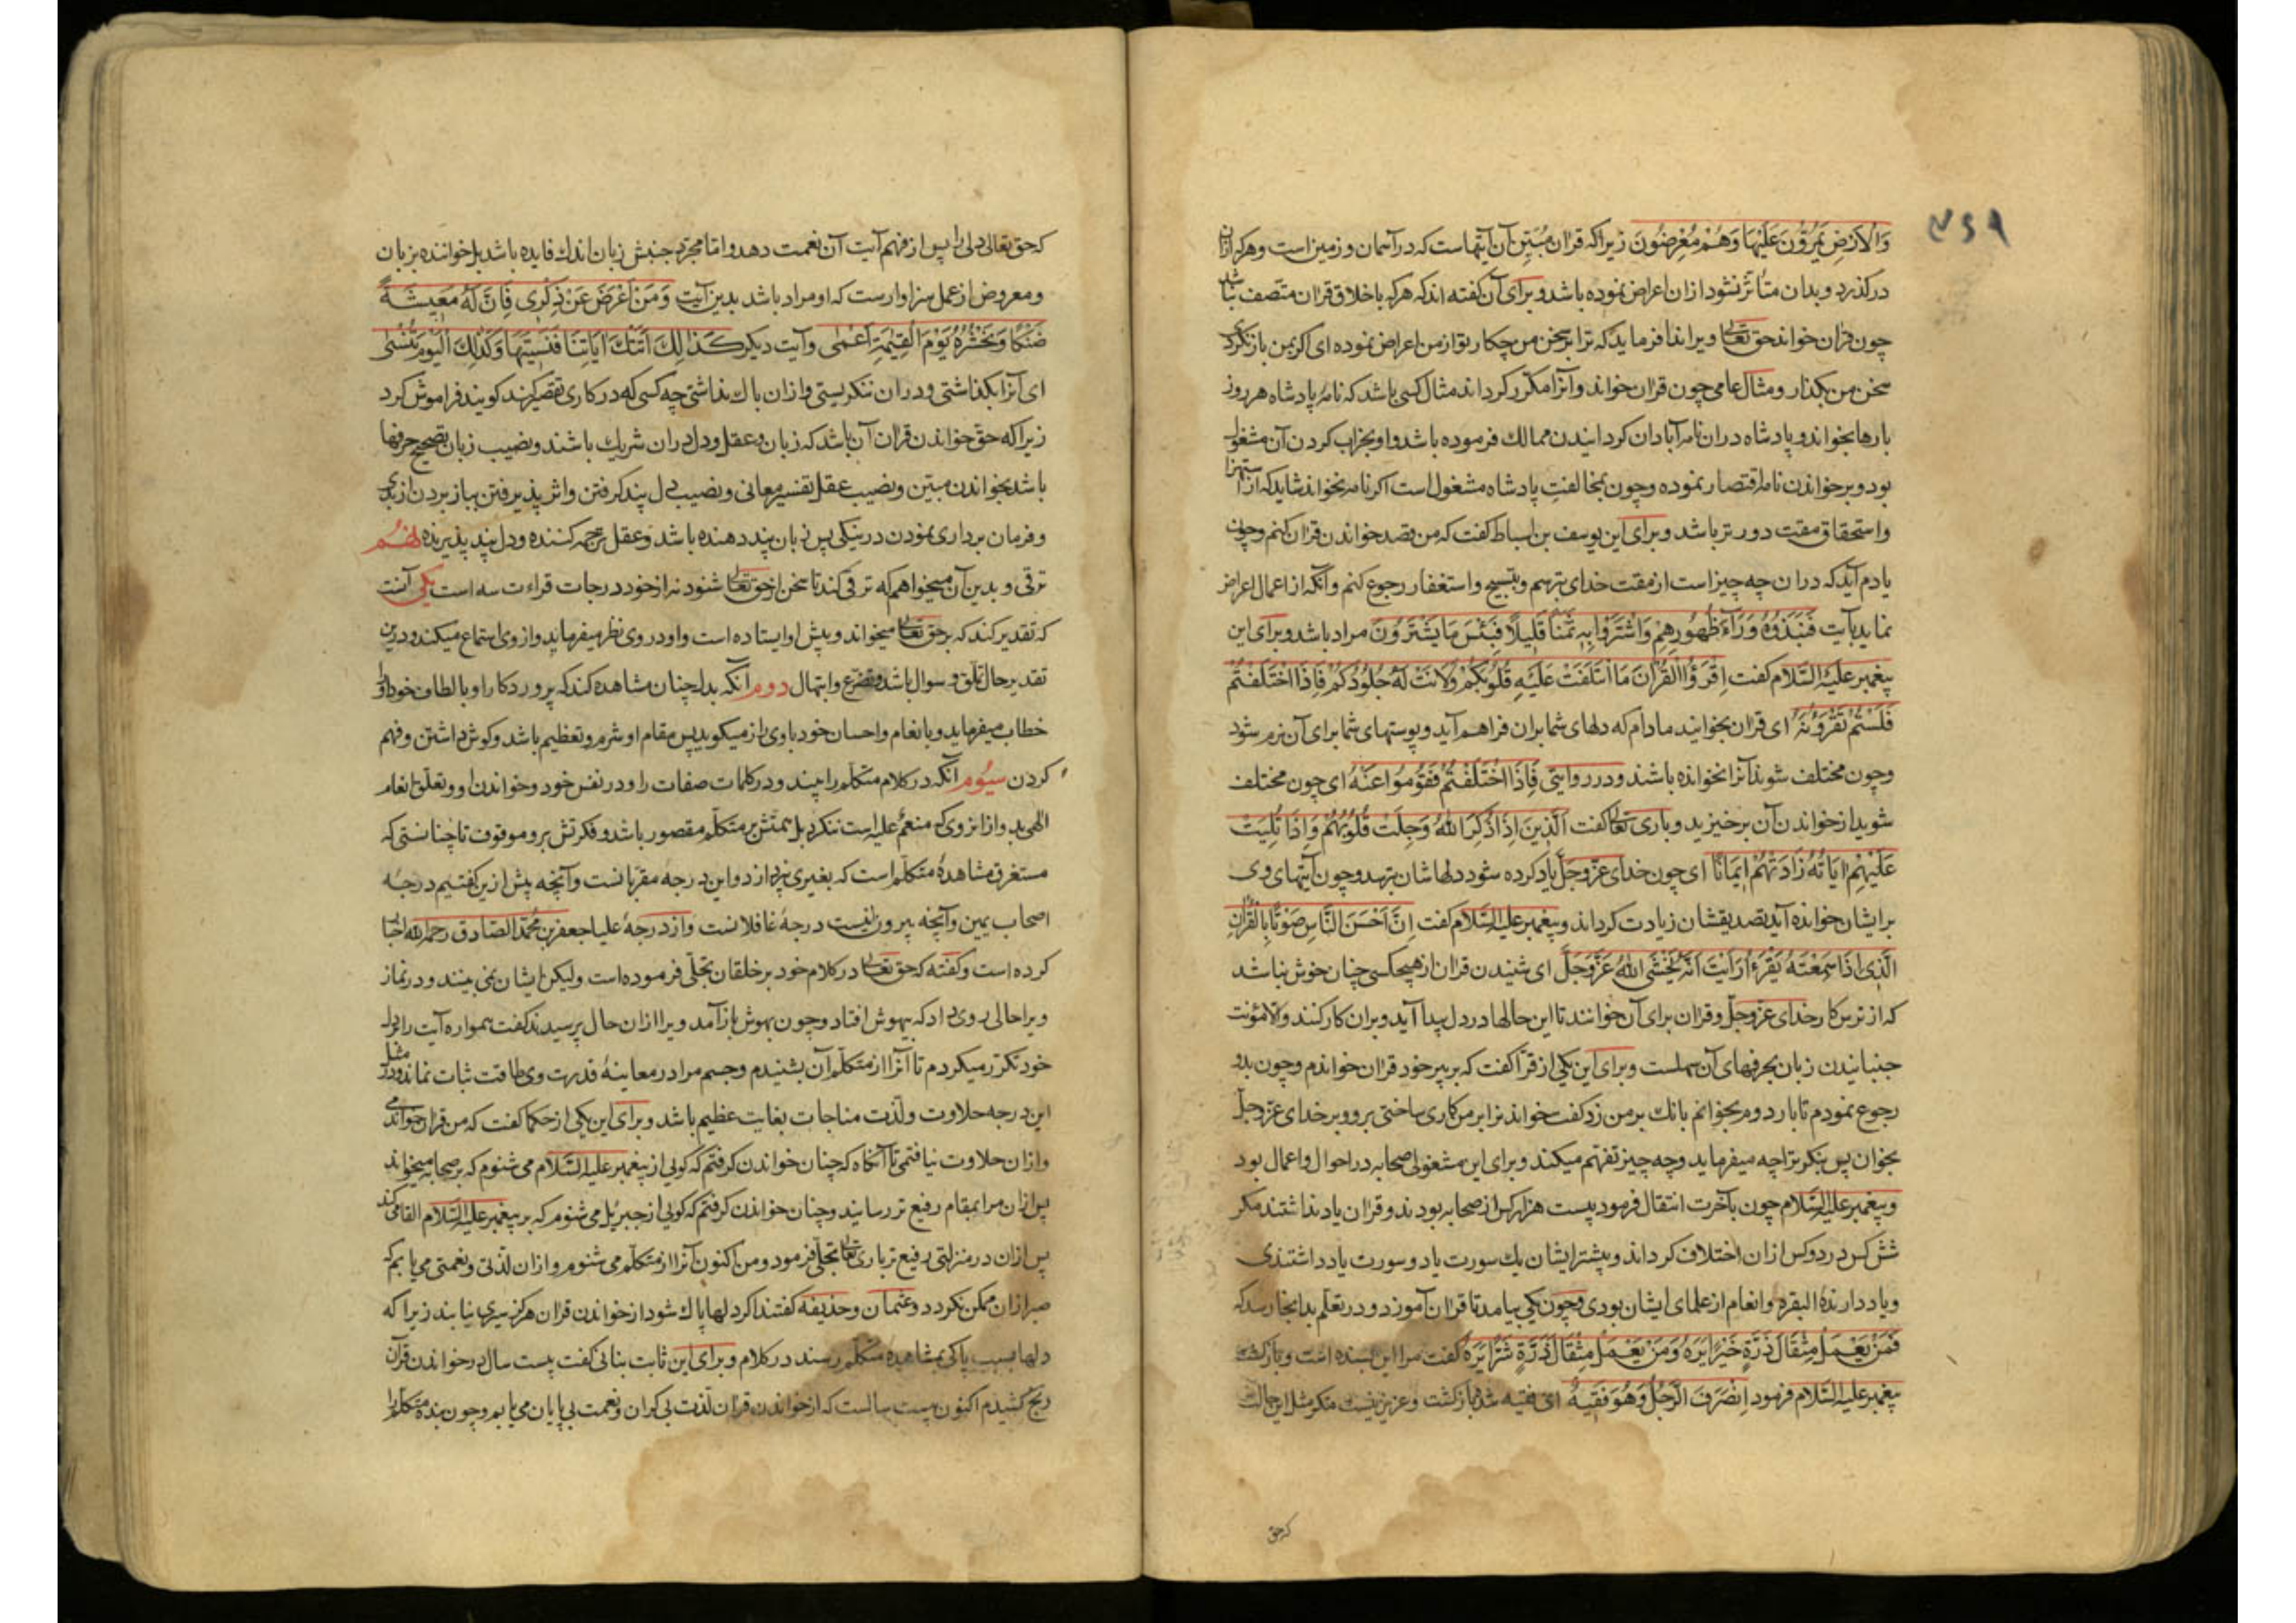 ۴۶۹
وَالْاَرْضِ يَمُرُّوْنَ عَلَيْهَا وَهُمْ مُعْرِضُوْنَ زیراکه قران مُبیّنِ آن آیتهاست که در آسمان و زمین است و هرکه ازان
درکذرد وبدان متأثّر نشود ازان اعراض نموده باشد و برای آن کفته اند که هرکه باخلاق قران متّصف نباشد
چون قران خواند حق تعالی ویرا ندا فرماید که ترا بر سخن من چکار وتو از من اعراض نموده ای اکر بمن بازنکردی
سخن من بکذار ومثال عامی چون قران خواند وآنرا مکرّر کرداند مثال کسی باشد که نامه پادشاه هر روز
بارها بخواند و پادشاه دران نامه آبادان کردانیدن ممالک فرموده باشد واو بخراب کردن آن مشغول
بود و بر خواندن نامه اقتصار نموده وچون بمخالفت پادشاه مشغول است اکر نامه نخواند شاید که از استهزا
واستحقاق مقت دورتر باشد وبرای این یوسف بن اسباط کفت که من قصد خواندن قران کنم وچون
یادم آید که دران چه چیزاست از مقت خدای بترسم وبتسبیح واستغفار رجوع کنم وآنکه از اعمال اعراض
نماید بآیت فَنَبَذُوْهُ وَرَآءَ ظُهُوْرِهِمْ وَاشْتَرَوْا بِهٖ ثَمَنًا قَلِيْلًا فَبِئْسَ مَا يَشْتَرُوْنَ مراد باشد وبرای این
پیغمبر علیه السّلام کفت اِقْرَؤُا الْقُرْاٰنَ مَا ائْتَلَفَتْ عَلَيْهِ قُلُوْبُكُمْ وَلَانَتْ لَهُ جُلُوْدُكُمْ فَاِذَا اخْتَلَفْتُمْ
فَلَسْتُمْ تَقْرَؤُنَهُ ای قران بخوانید مادام که دلهای شما بران فراهم آید وپوستهای شما برای آن نرم شود
وچون مختلف شوند آنرا نخوانده باشند ودر روایتی فَاِذَا اخْتَلَفْتُمْ فَقُوْمُوْا عَنْهُ ای چون مختلف
شوید از خواندن آن برخیزید وباری تعالی کفت اَلَّذِيْنَ اِذَا ذُكِرَ اللّٰهُ وَجِلَتْ قُلُوْبُهُمْ وَاِذَا تُلِيَتْ
عَلَيْهِمْ اٰيَاتُهُ زَادَتْهُمْ اِيْمَانًا ای چون خدای عزّوجلّ یاد کرده شود دلهاشان بترسد وچون آیتهای وی
بر ایشان خوانده آید تصدیقشان زیادت کرداند وپیغمبر علیه السّلام کفت اِنَّ اَحْسَنَ النَّاسِ صَوْتًا بِالْقُرْاٰنِ
الَّذِيْ اِذَا سَمِعْتَهُ يَقْرَءُ اُرَايْتَ اَنَّهُ يَخْشَى اللّٰهَ عَزَّوَجَلَّ ای شنیدن قران از هیچکسی چنان خوش نباشد
که از ترسکار خدای عزّوجلّ وقران برای آن خوانند تا این حالها در دل پیدا آید وبران کار کنند والا مؤنت
جنبانیدن زبان بحرفهای آن سهلست وبرای این یکی از قرّا کفت که بر پیر خود قران خواندم وچون بدو
رجوع نمودم تا بار دوم بخوانم بانک بر من زد کفت خواندنرا بر من کاری ساختی برو وبر خدای عزّوجلّ
بخوان پس بنکر ترا چه میفرماید وچه چیز تفهّم میکند وبرای این مشغولی صحابه در احوال واعمال بود
وپیغمبر علیه السّلام چون بآخرت انتقال فرمود بیست هزار کس از صحابه بودند وقران یاد نداشتند مکر
شش کس در دو کس ازان اختلاف کرداند وبیشتر ایشان یک سورت یا دو سورت یاد داشتندی
ویاددارندهٔ البقره وانعام از علمای ایشان بودی وچون یکی بیامد تا قران آموزد ودر تعلّم بدانجا رسد که
فَمَنْ يَعْمَلْ مِثْقَالَ ذَرَّةٍ خَيْرًا يَرَهُ وَمَنْ يَعْمَلْ مِثْقَالَ ذَرَّةٍ شَرًّا يَرَهُ کفت مرا این بسنده است وبازکشت
پیغمبر علیه السّلام فرمود اِنْصَرَفَ الرَّجُلُ وَهُوَ فَقِيْهٌ ای فقیه شد وبازکشت وعزیز نیست مکر مثل این حالت
که حق
که حق تعالی دلی را پس از فهم آیت آن نعمت دهد واما مجرّد جنبش زبان اندک فایده باشد بل خواننده بزبان
ومعروض از عمل سزاوارست که او مراد باشد بدین آیت وَمَنْ اَعْرَضَ عَنْ ذِكْرِيْ فَاِنَّ لَهُ مَعِيْشَةً
ضَنْكًا وَنَحْشُرُهُ يَوْمَ الْقِيٰمَةِ اَعْمٰى وآیت دیکر كَذٰلِكَ اَتَتْكَ اٰيَاتُنَا فَنَسِيْتَهَا وَكَذٰلِكَ الْيَوْمَ تُنْسٰى
ای آنرا بکذاشتی ودران ننکریستی وازان باک نداشتی چه کسی که در کاری تقصیر کند کویند فراموش کرد
زیراکه حق خواندن قران آن باشد که زبان وعقل ودل دران شریک باشند ونصیب زبان تصحیح حرفها
باشد بخواندن مبین ونصیب عقل تفسیر معانی ونصیب دل پند کرفتن واثر پذیرفتن بباز بردن از بدی
وفرمان برداری نمودن در نیکی پس زبان پند دهنده باشد وعقل ترجمه کننده ودل پند پذیرنده نهم
ترقی و بدین آن میخواهم که ترقی کند تا سخن از حق تعالی شنود نه از خود درجات قراءت سه است یکی آنست
که تقدیر کند که بر حق تعالی میخواند وپیش او ایستاده است واو در وی نظر میفرماید واز وی استماع میکند ودرین
تقدیر حال تملّق وسوال باشد وتضرع وابتهال دوم آنکه بدل چنان مشاهده کند که پروردکار او بالطاف خود اورا
خطاب میفرماید وبانعام واحسان خود باوی راز میکوید پس مقام او شرم وتعظیم باشد وکوش داشتن وفهم
کردن سیُوم آنکه در کلام متکلّم را بیند ودر کلمات صفات را ودر نفس خود وخواندن او وتعلّق انعام
الهی بدو ازانروی که منعَم علیه است ننکرد بل همتش بر متکلّم مقصور باشد وفکرتش برو موقوف تا چنانستی که
مستغرق مشاهدهٔ متکلّم است که بغیری نپردازد واین درجه مقربانست وآنچه پیش ازین کفتیم درجه
اصحاب یمین وآنچه بیرون اینست درجهٔ غافلانست واز درجهٔ علیا جعفر بن محمّد الصّادق رحمه الله اخبار
کرده است وکفته که حق تعالی در کلام خود بر خلقان تجلّی فرموده است ولیکن ایشان نمی بینند ودر نماز
ویرا حالی روی داد که بیهوش افتاد وچون بهوش بازآمد ویرا ازان حال پرسیدند کفت همواره آیت را بر دل
خود تکرّر میکردم تا آنرا از متکلّم آن بشنیدم وجسم مرا در معاینهٔ قدرت وی طاقت ثبات نماند ودر مثل
این درجه حلاوت ولذّت مناجات بغایت عظیم باشد وبرای این یکی از حکما کفت که من قران خواندمی
وازان حلاوت نیافتمی تا آنکاه که چنان خواندن کرفتم که کویی از پیغمبر علیه السّلام می شنوم که بر صحابه میخواند
پس ازان مرا بمقام رفیع تر رسانیدند وچنان خواندن کرفتم که کویی از جبرئیل می شنوم که بر پیغمبر علیه السّلام القا می کند
پس ازان در منزلتی رفیع تر باری تعالی تجلّی فرمود ومن اکنون آنرا از متکلّم می شنوم وازان لذّتی ونعمتی می یابم که
صبر ازان ممکن نکردد وعثمان وحذیفه کفتند اکر دلها پاک شود از خواندن قران هرکز سیری نیابند زیرا که
دلها بسبب پاکی بمشاهدهٔ متکلّم رسند در کلام وبرای این ثابت بنانی کفت بیست سال در خواندن قرآن
رنج کشیدم اکنون بیست سالست که از خواندن قران لذّت بی کران ونعمت بی پایان می یابم وچون بنده متکلّم را